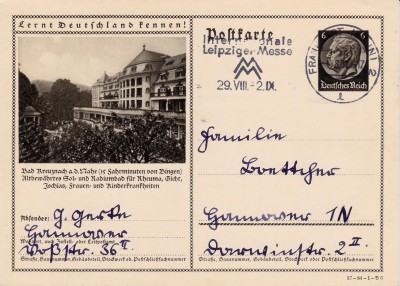 Lernt Deutschland kennen!
Bad Kreuznach a.d. Nahe (15 Fahrminuten von Bingen)
Altbewährtes Sol- und Radiumbad für Rheuma, Gicht,
Ischias, Frauen- und Kinderkrankheiten
Absender: G. Gerke
Hannover
Wohnort, auch Zustell- oder Leitpostamt
Voßstr. 36 II
Straße, Hausnummer, Gebäudeteil, Stockwerk od. Postschließfachnummer
Postkarte
Internationale
Leipziger Messe
29. VIII. - 2. IX.
6 6
Deutsches Reich
Familie
Boettcher
Hannover 1N
Darwinstr. 2 II
Straße, Hausnummer, Gebäudeteil, Stockwerk oder Postschließfachnummer